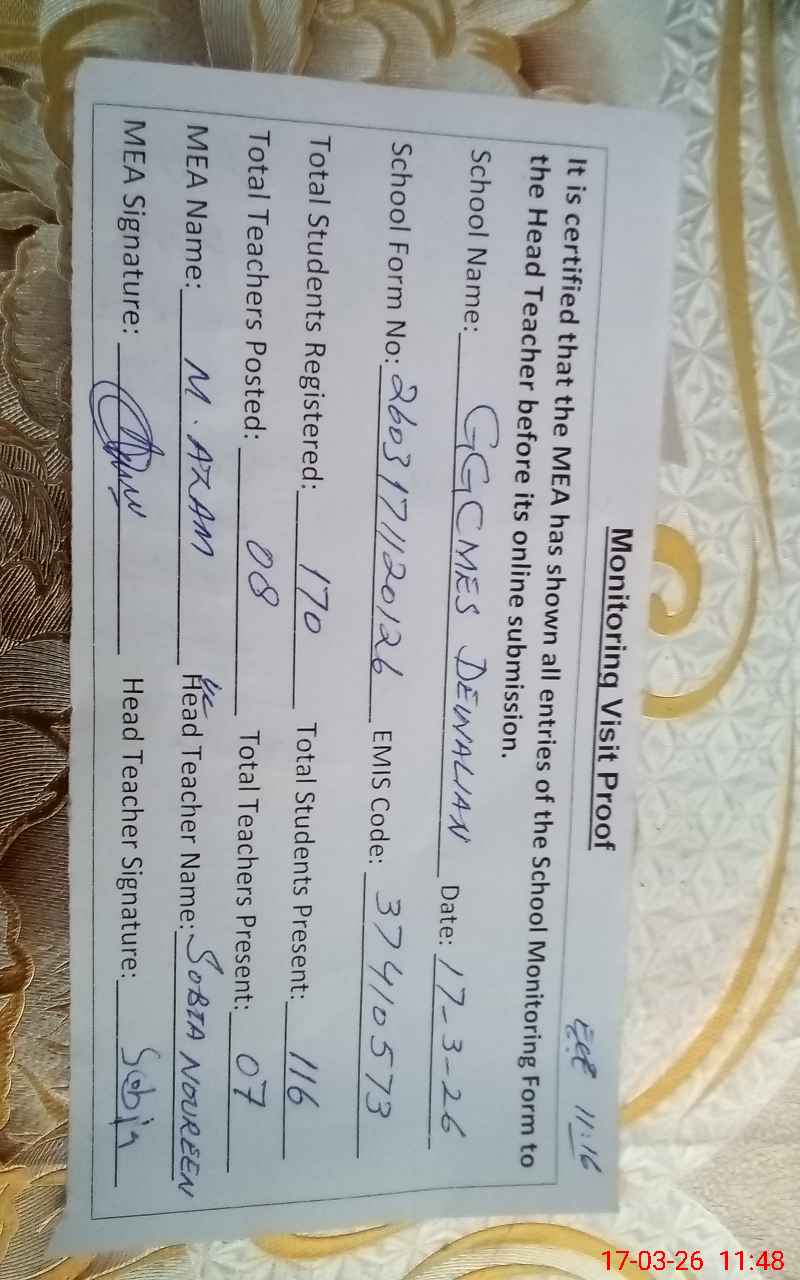 Monitoring Visit Proof
11:16
It is certified that the MEA has shown all entries of the School Monitoring Form to
the Head Teacher before its online submission.
School Name: GGCMES DEWALIAN Date: 17-3-26
School Form No: 2603171120126 EMIS Code: 37410573
Total Students Registered: 170 Total Students Present: 116
Total Teachers Posted: 08 Total Teachers Present: 07
MEA Name: M. AZAM Head Teacher Name: SOBIA NOUREEN
MEA Signature: Head Teacher Signature: Sobia
17-03-26 11:48